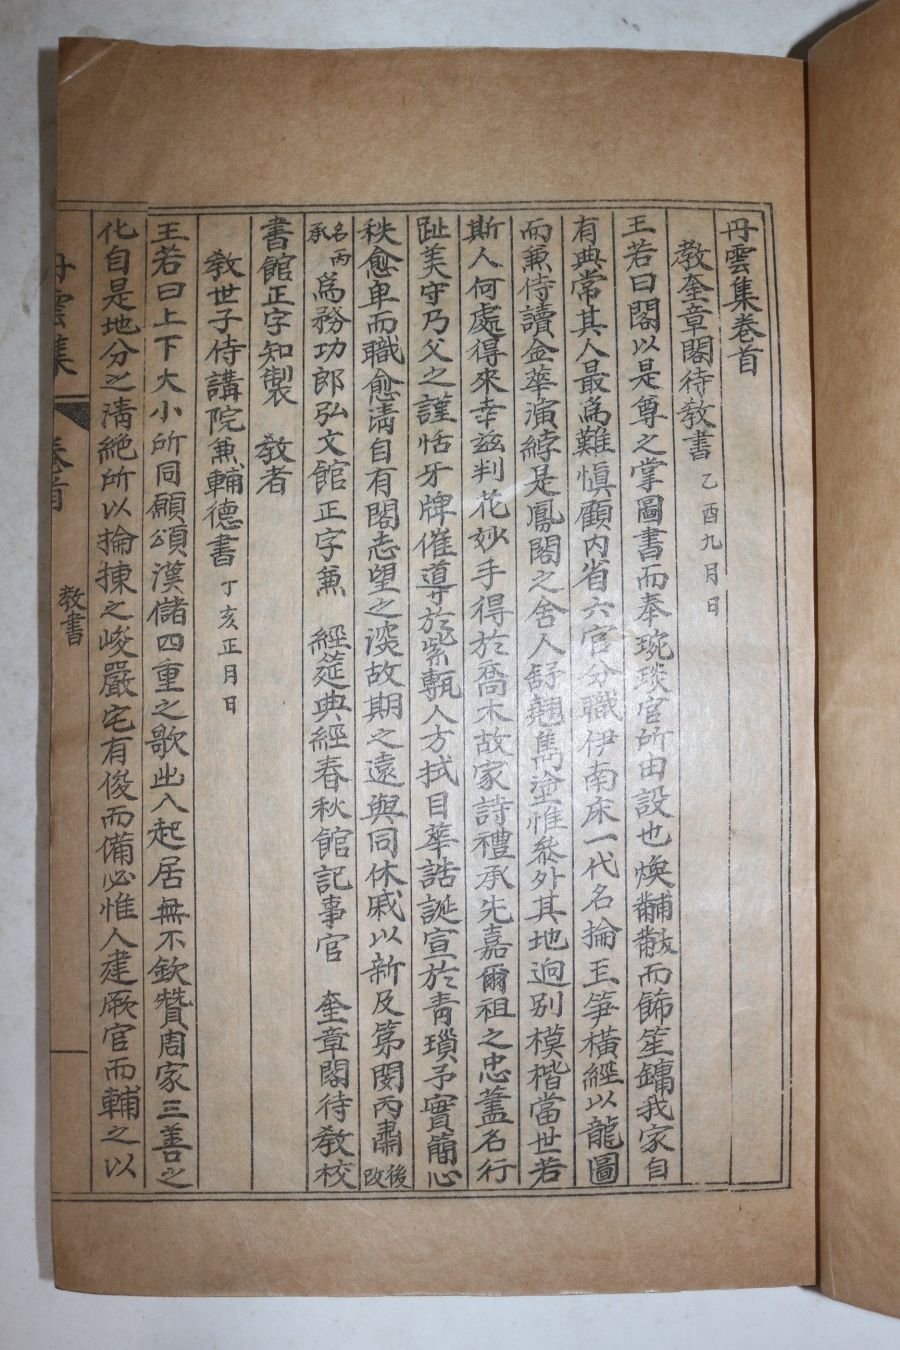 丹雲集卷首
教奎章閣待教書 乙酉九月日
王若曰閣以是尊之掌圖書而奉琬琰官所由設也煥黼黻而飾笙鏞我家自
有典常其人最爲難愼顧內省六官分職伊南床一代名掄玉笋橫經以龍圖
而兼侍讀金華演綍是鳳閣之舍人舒翹雋塗惟叅外其地逈別模楷當世若
斯人何處得來幸玆判花妙手得於喬木故家詩禮承先嘉爾祖之忠藎名行
趾美守乃父之謹恬牙牌催導於紫甎人方拭目華誥誕宣於靑瑣予實簡心
秩愈卑而職愈淸自有閣志望之淡故期之遠與同休戚以新及第閔丙肅後改
名丙承爲務功郎弘文館正字兼 經筵典經春秋館記事官 奎章閣待教校
書館正字知製 教者
教世子侍講院兼輔德書 丁亥正月日
王若曰上下大小所同願頌漢儲四重之歌出入起居無不欽贊周家三善之
化自是地分之淸絶所以掄揀之峻嚴宅有俊而備必惟人建厥官而輔之以
丹雲集 卷首 教書